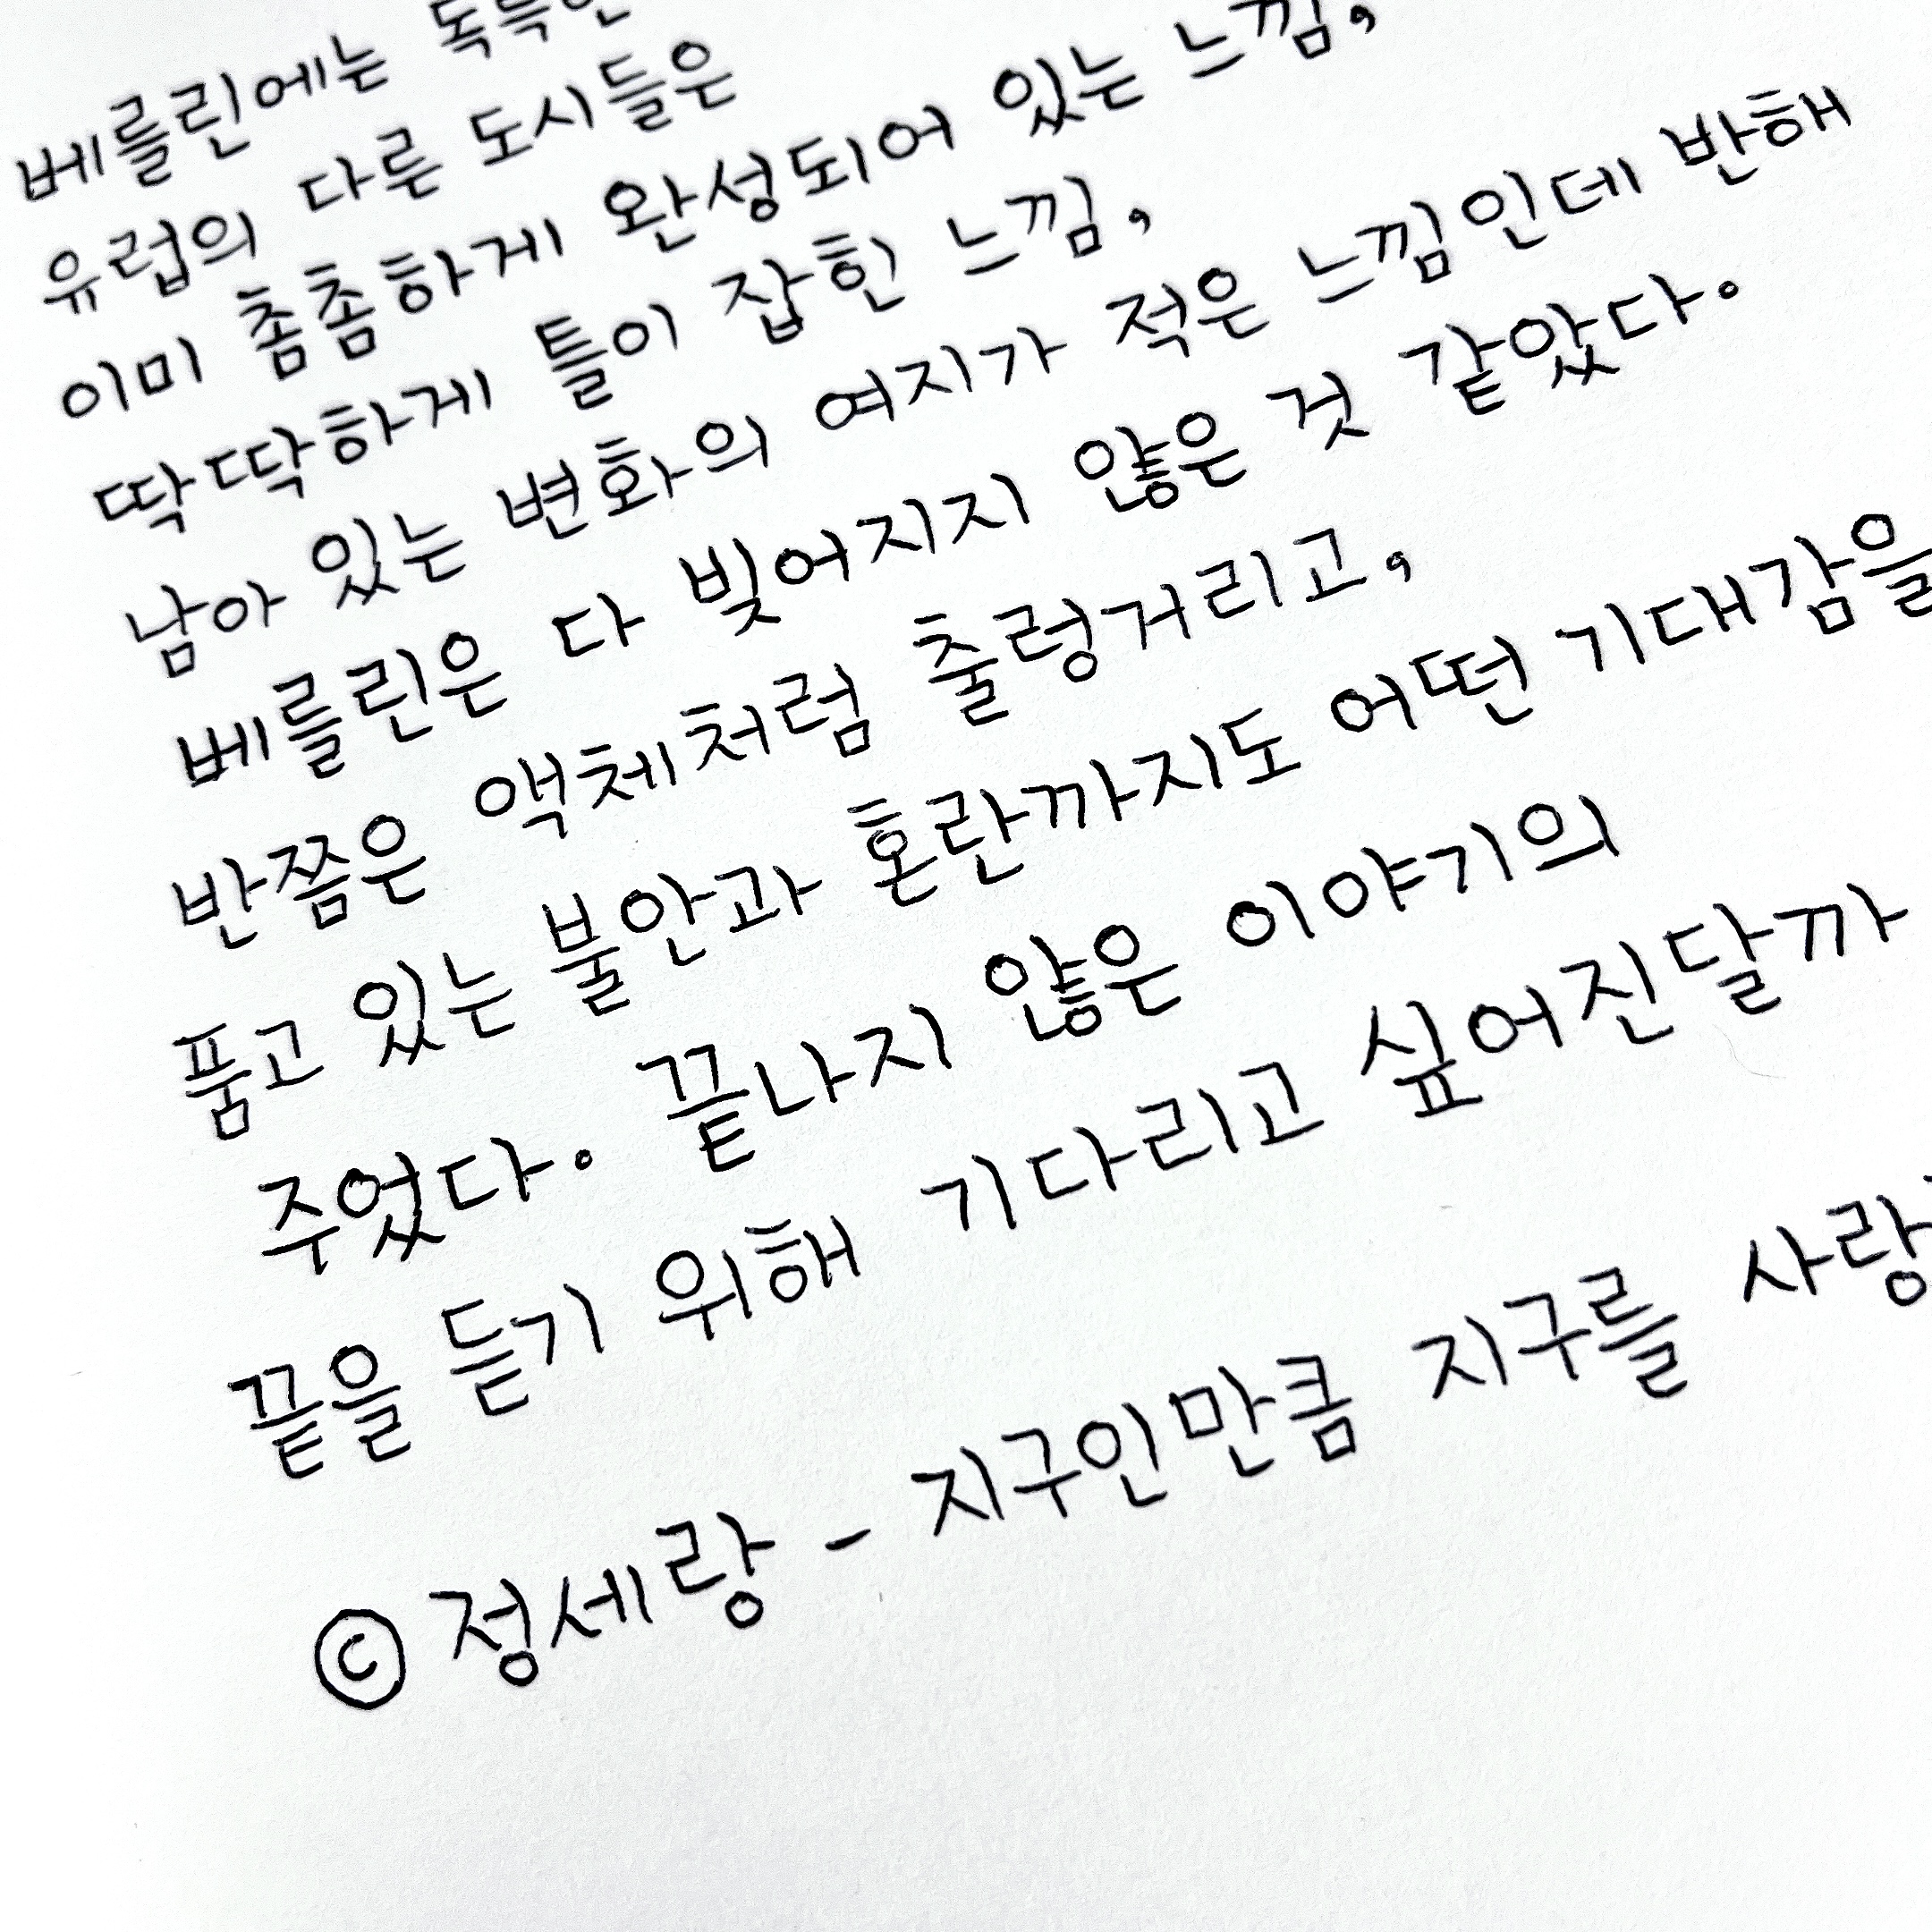 베를린에는
유럽의 다른 도시들은
이미 촘촘하게 완성되어 있는 느낌,
딱딱하게 틀이 잡힌 느낌,
남아 있는 변화의 여지가 적은 느낌인데 반해
베를린은 다 빚어지지 않은 것 같았다.
반쯤은 액체처럼 출렁거리고,
품고 있는 불안과 혼란까지도 어떤 기대감을
주었다. 끝나지 않은 이야기의
끝을 듣기 위해 기다리고 싶어진달까
© 정세랑 - 지구인만큼 지구를 사랑